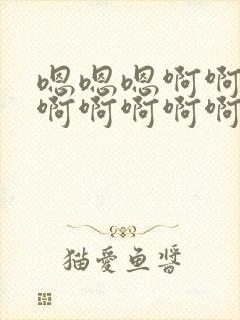 嗯嗯嗯啊啊
啊啊啊啊啊
猫愛鱼醬